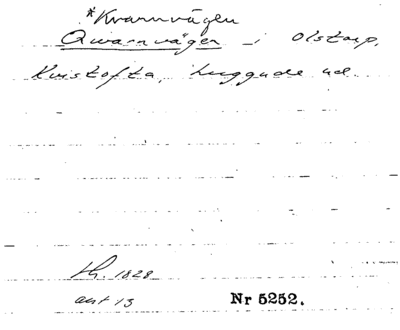 *Kvarnvägen
Qwarnvägen i Olstorp,
Kvistofta, Luggude hd.
th. 1828
akt 13 Nr 5252.